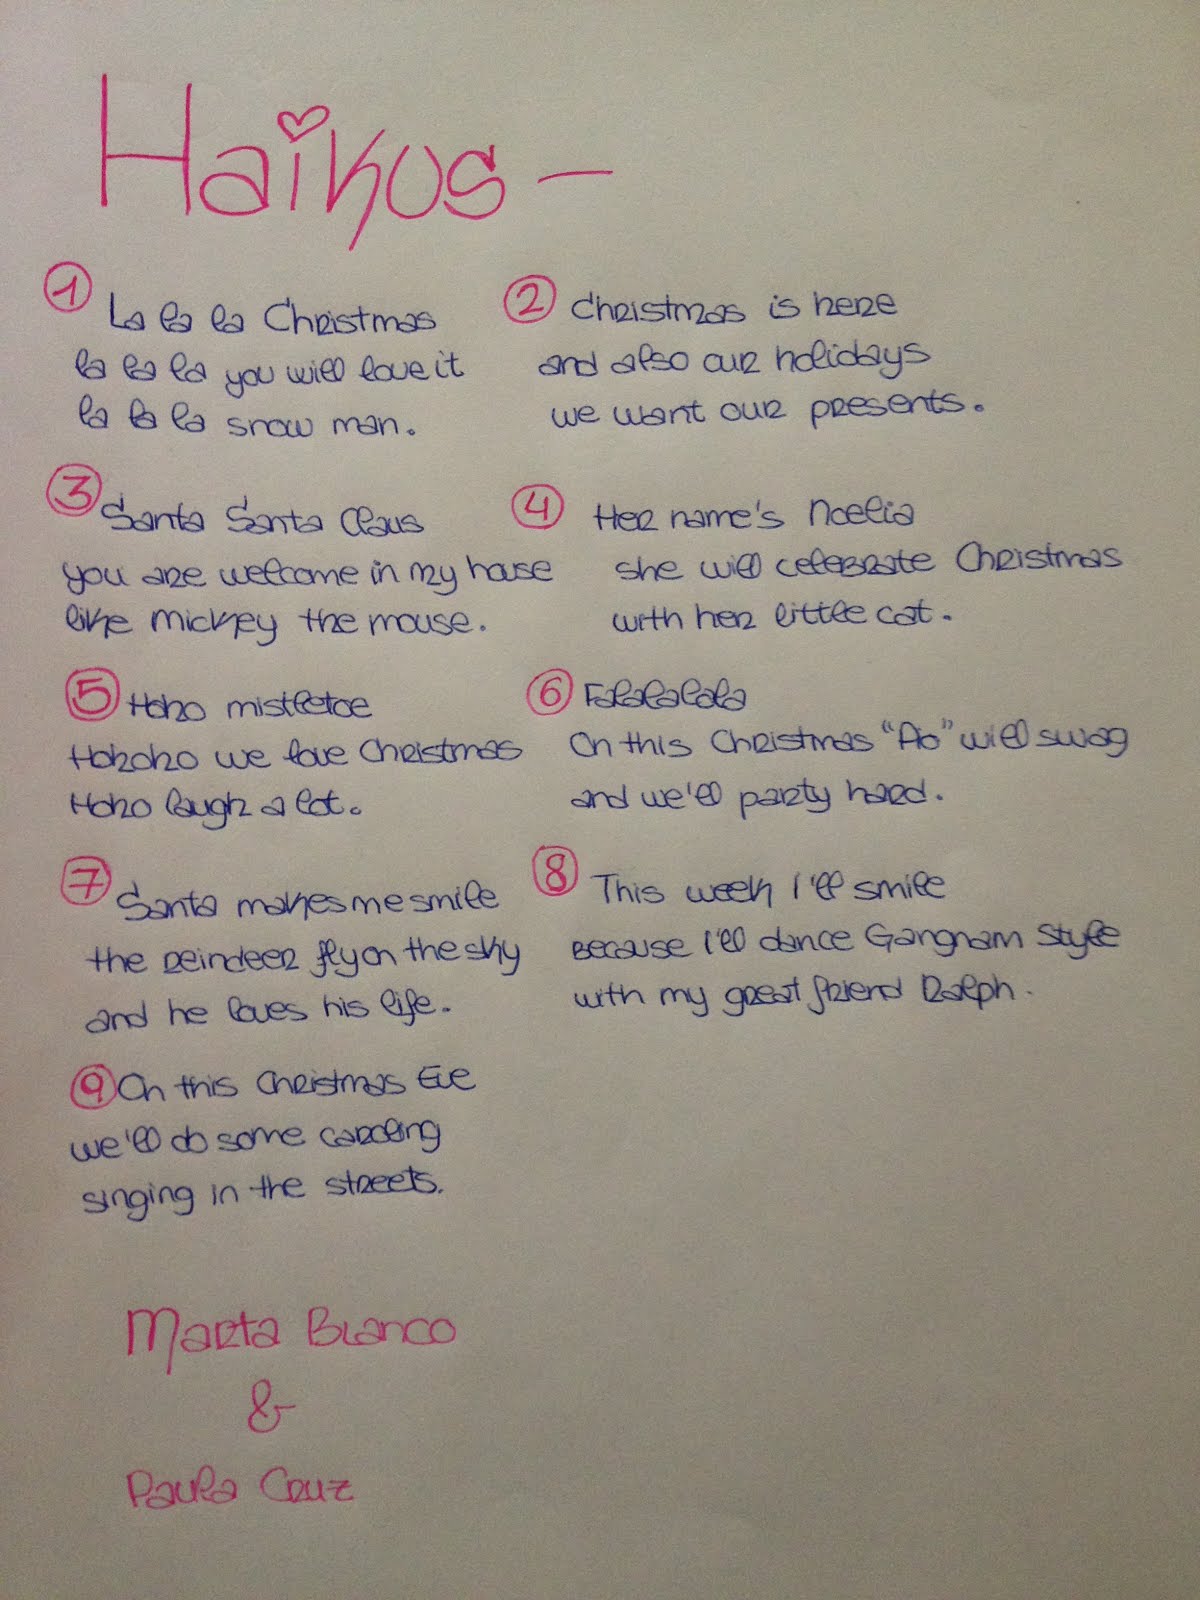 Haikus -
1 La la la Christmas
la la la you will love it
la la la snow man.
2 Christmas is here
and also our holidays
we want our presents.
3 Santa Santa Claus
you are welcome in my house
like mickey the mouse.
4 Her name's Noelia
she will celebrate Christmas
with her little cat.
5 Hoho mistletoe
Hohoho we love Christmas
Hoho laugh a lot.
6 Falalalala
On this Christmas "Ao" will swag
and we'll party hard.
7 Santa makes me smile
the reindeer fly on the sky
and he loves his life.
8 This week I'll smile
Because I'll dance Gangnam Style
with my great friend Ralph.
9 On this Christmas Eve
we'll do some caroling
singing in the streets.
Marta Blanco
&
Paula Cruz